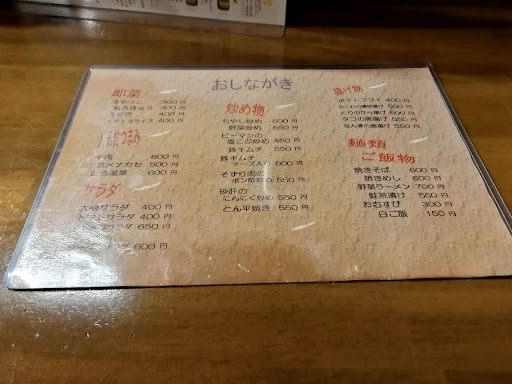 おしながき
即菜
冷やっこ 300円
もろきゅう 300円
400円
トマトスライス 400円
おつまみ
牛肉 800円
コメナカセ 500円
とろ温菜 600円
サラダ
大根サラダ 400円
トマトサラダ 400円
サラダ 650円
サラダ 600円
炒め物
もやし炒め 500円
野菜炒め 550円
ピーマンの
塩こぶ炒め 450円
豚キムチ 550円
豚キムチ
チーズ入り 600円
そずり肉の
ポン酢炒め 550円
砂肝の
にんにく炒め 550円
とん平焼き 550円
揚げ物
ポテトフライ 400円
500円
とりのから揚げ 600円
タコの唐揚げ 550円
なん骨の唐揚げ 550円
麺類
ご飯物
焼きそば 600円
焼きめし 600円
野菜ラーメン 700円
鮭茶漬け 550円
おむすび 300円
白ご飯 150円